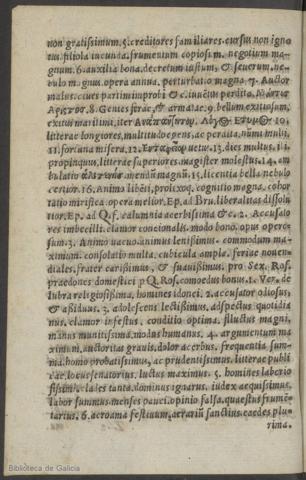 non gratissimum. 5. creditores familiares. cursus non igno
tus. filiola iucunda. frumentum copiosũ. negotium ma-
gnum. 6. auxilia bona. decretum iustum, & seuerum. ne-
bulo magnus. opera annua. perturbatio magna. 7. Auctor
malus. ciues partim improbi &c. inuictus perdito.
8. Gentes feræ, & armatæ. 9. bellum exitiosum,
exitus maritimi, iter 10.
litterae longiores, multitudo egens, ac perdita. nũmi multi,
11. fortuna misera. 12. uetus. 13. dies multus. 14.
propinquus. litterae superiores. magister molestus. 14. am
bulatio mendũ magnũ. 15. licentia bella nebulo
certior. 16. Animo libẽti, prolixoq. cognitio magna. cohor
tatio mirifica. opera melior. Ep. ad Bru. liberalitas dissolu
tior. Ep. ad Q. F. calumnia acerbissima &c. 2. Accusato
res imbecilli. clamor concionalis. modo bono. opus opero-
sum. 3. Animo uacuo. animus lenissimus. commodum ma-
ximum. consolatio multa. cubicula ampla. feriae nouen-
diales. frater carissimus, & suauissimus. pro Sex. Ros.
praedones domestici p Q. Ros. comoedus bonus. 1. Ver. de
lubra religiosissima. homines idonei. 2. accusator odiosus,
& assiduus. 3. adolescens lectissimus. adspectus quotidia
nus. clamor infestus. conditio optima. fluctus magni.
manus munitissima. modus humanus. 4. argumentum ma
ximum. auctoritas grauis. dolor acerbus. frequentia sum-
ma. homo probatissimus, ac prudentissimus. litterae publi
cae. locus senatorius. luctus maximus. 5. homines laborio
sissimi. clades tanta. dominus ignarus. iudex aequissimus.
labor summus. menses pauci. opinio falsa. quaestus frumẽ-
tarius. 6. acroama festiuum. aerariũ sanctius. caedes plu-
rima.
Biblioteca de Galicia